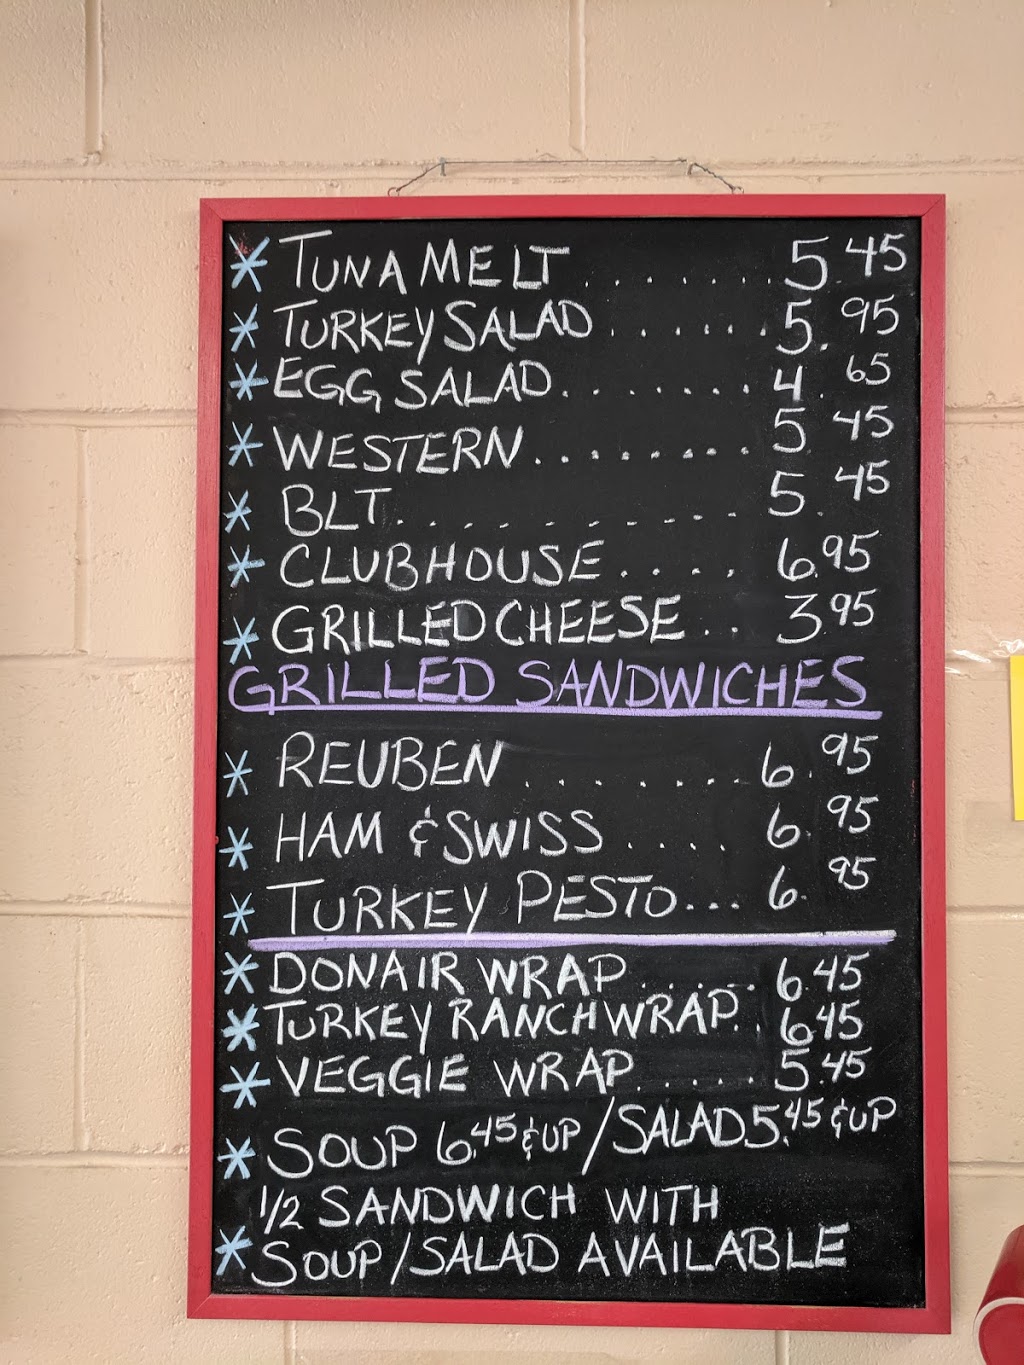 * TUNA MELT ....... 5.45
* TURKEY SALAD ....... 5.95
* EGG SALAD ........ 4.65
* WESTERN ........ 5.45
* BLT ........... 5.45
* CLUBHOUSE .... 6.95
* GRILLED CHEESE .. 3.95
GRILLED SANDWICHES
* REUBEN ........ 6.95
* HAM & SWISS .... 6.95
* TURKEY PESTO ... 6.95
* DONAIR WRAP ..... 6.45
* TURKEY RANCH WRAP .. 6.45
* VEGGIE WRAP ..... 5.45
* SOUP 6.45 & UP / SALAD 5.45 & UP
1/2 SANDWICH WITH
* SOUP / SALAD AVAILABLE